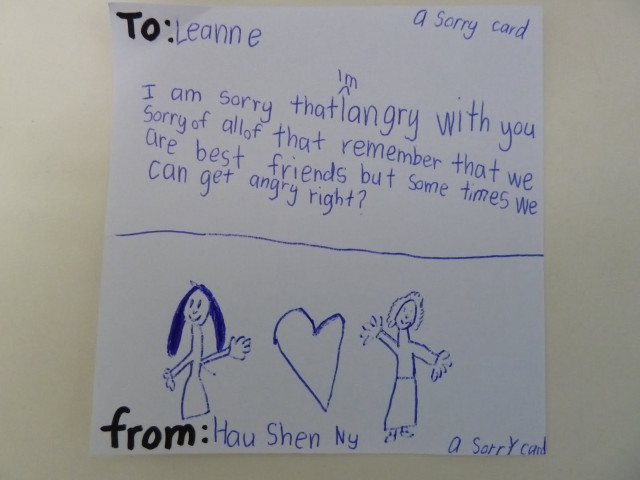 To: Leanne
a sorry card
I'm
I am sorry that angry with you
Sorry of all of that remember that we
are best friends but some times we
can get angry right?
from: Hau Shen Ny
a sorry card